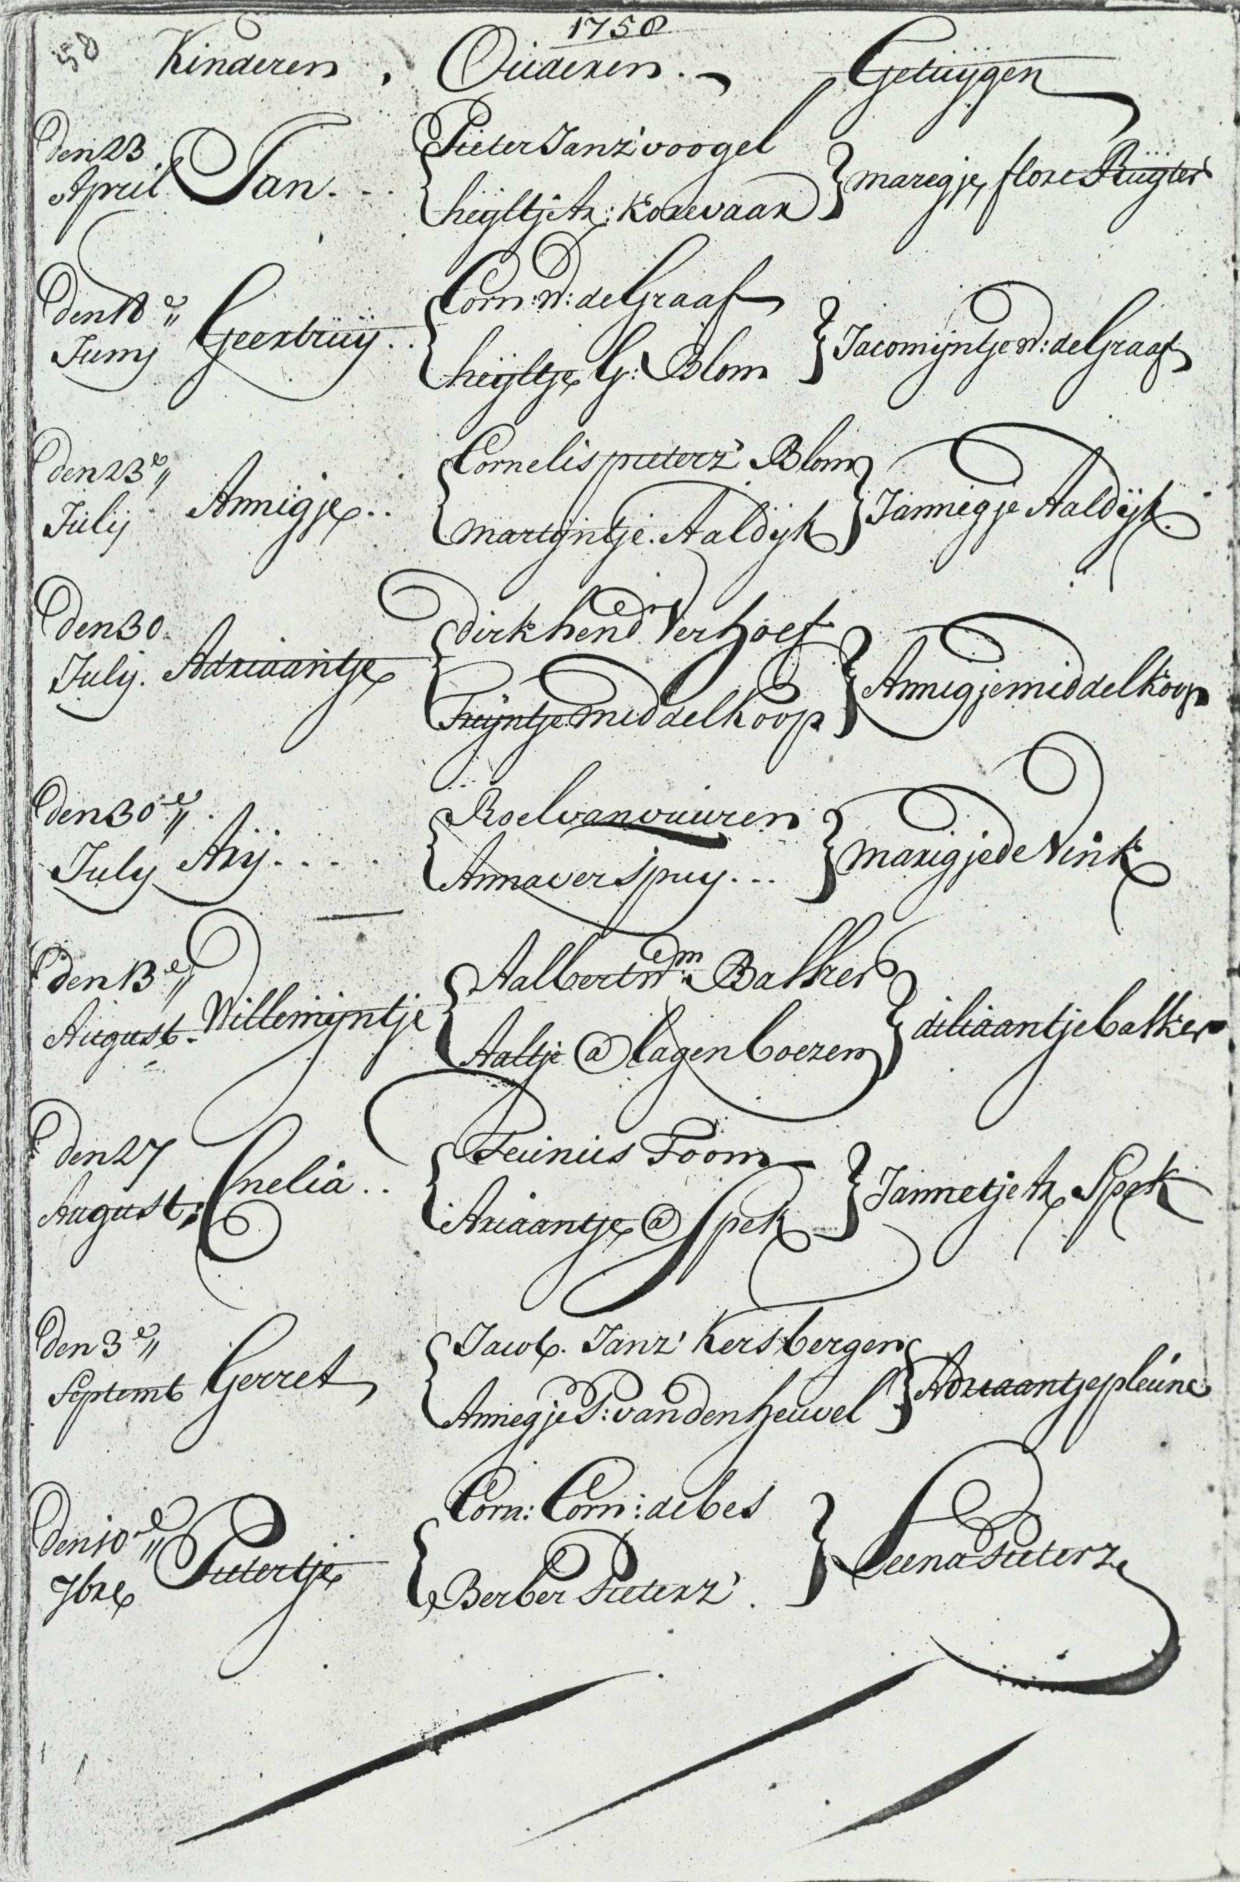 58
1758
Kinderen, Ouderen. Getuijgen
den 23 April Jan. Pieter Janz' voogel
heijltje Az: Korevaar
maregje flore Ruijter
den 18e Juny Geertruij.. Corn: W: de Graaf
heijltje G: Blom
Jacomijntje W: de Graaf
den 23e Julij Annigje.. Cornelis pieterz' Blom
martijntje. Aaldijk
Jannegje Aaldijk.
den 30 July. Adriaantje dirk hend Verhoef
Trijntje middelkoop
Annigje middelkoop
den 30e July Arij..... Roel van vuuren
Anna verspuy...
marigje de Vink
den 13e August. Willemijntje Aalbert Wm. Bakker
Aaltje @ lagen boezem
diliaantje bakker
den 27 August; Cnelia.. Teunius Toom
Ariaantje @ Spek
Jannetje Az Spek
den 3e Septemb Gerret Jacob. Janz' Kersbergen
Annegje P: van den heuvel
Adriaantje pleune
den 10e 7bre Pietertje Corn: Corn: de bes
Berber Pieterz'.
Leena Pieterz